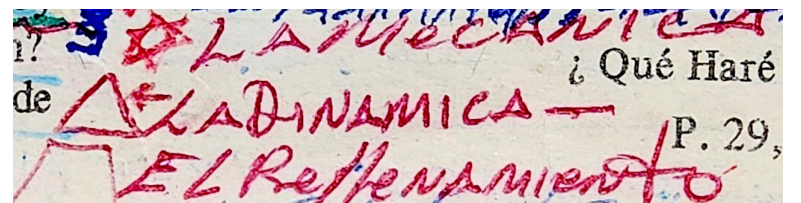 n?
LA MeCANICA
¿ Qué Haré
de
LA DINAMICA —
P. 29,
EL ReLLeNAMIENTO